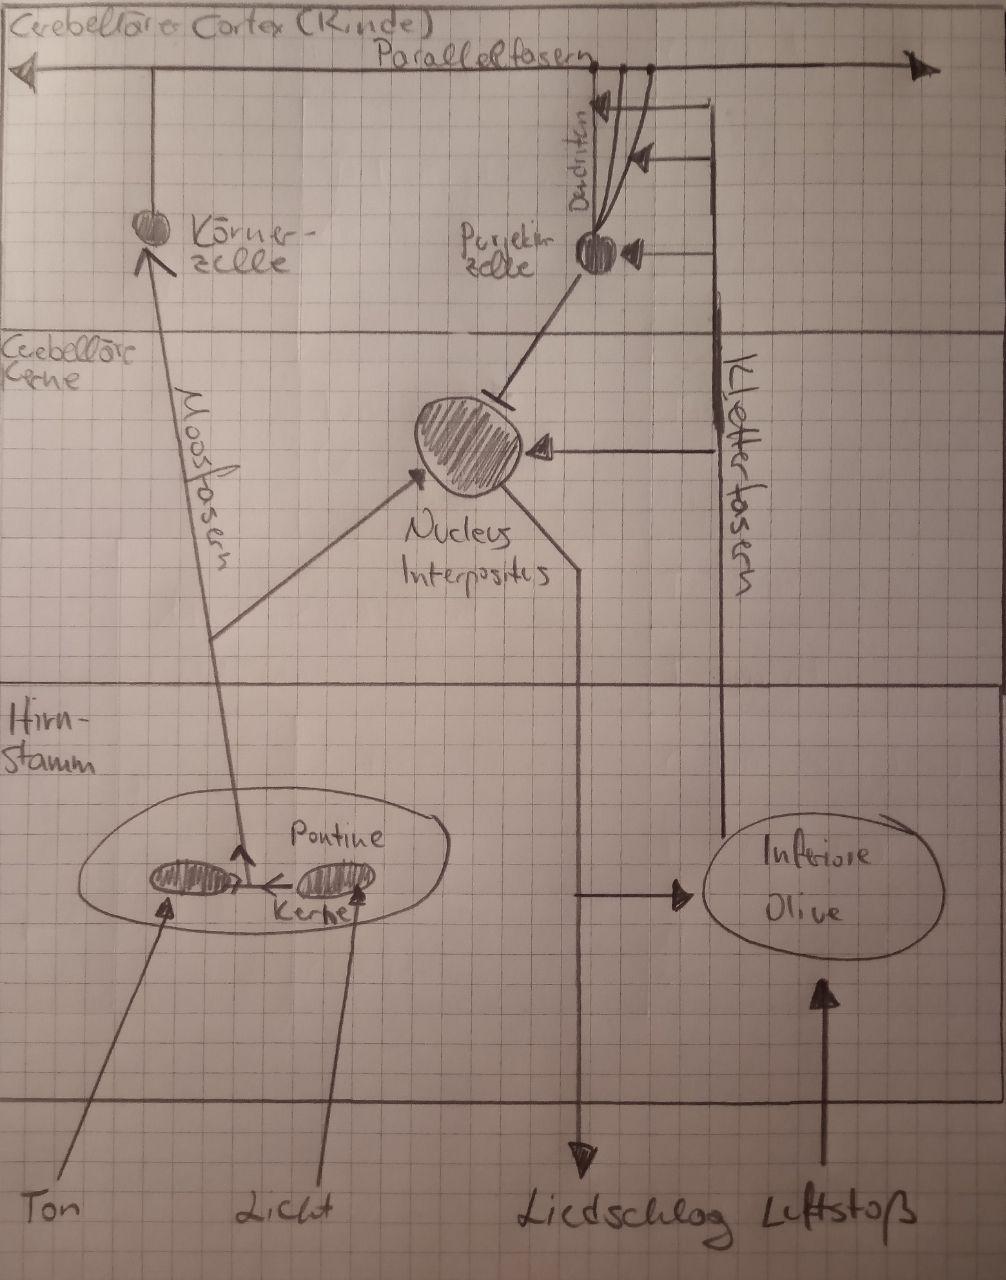 Cerebellärer Cortex (Rinde)
Parallelfasern
Dendriten
Körner-
zelle
Purjekin
zelle
Cerebelläre
Kerne
Moosfasern
Kletterfasern
Nucleus
Interpositus
Hirn-
stamm
Pontine
Kerne
Inferiore
Olive
Ton
Licht
Liedschlag
Luftstoß